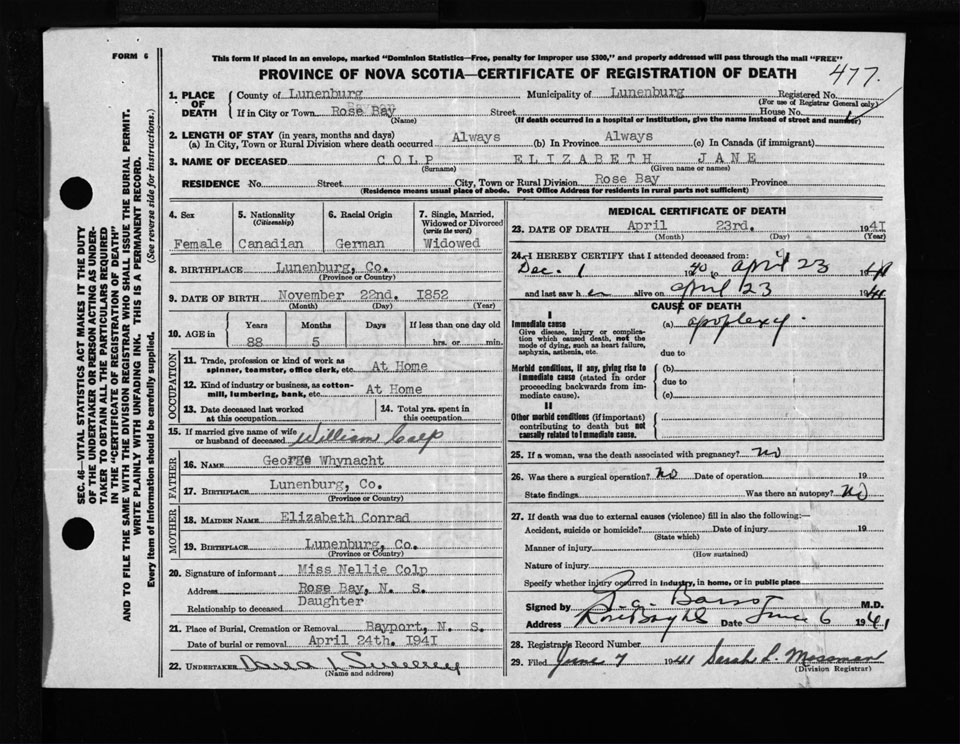 FORM 6
This form if placed in an envelope, marked "Dominion Statistics—Free, penalty for improper use $300," and properly addressed will pass through the mail "FREE"
PROVINCE OF NOVA SCOTIA—CERTIFICATE OF REGISTRATION OF DEATH
477.
1. PLACE OF DEATH
County of Lunenburg Municipality of Lunenburg Registered No.
(For use of Registrar General only)
If in City or Town Rose Bay Street House No.
(Name) (If death occurred in a hospital or institution, give the name instead of street and number)
2. LENGTH OF STAY (in years, months and days)
(a) In City, Town or Rural Division where death occurred Always (b) In Province Always (c) In Canada (if immigrant)
3. NAME OF DECEASED COLP ELIZABETH JANE
(Surname) (Given name or names)
RESIDENCE No. Street City, Town or Rural Division Rose Bay Province
(Residence means usual place of abode. Post Office Address for residents in rural parts not sufficient)
4. Sex Female
5. Nationality (Citizenship) Canadian
6. Racial Origin German
7. Single, Married, Widowed or Divorced (write the word) Widowed
8. BIRTHPLACE Lunenburg, Co.
(Province or Country)
9. DATE OF BIRTH November 22nd. 1852
(Month) (Day) (Year)
10. AGE in Years Months Days If less than one day old
88 5 hrs. or min.
OCCUPATION
11. Trade, profession or kind of work as spinner, teamster, office clerk, etc. At Home
12. Kind of industry or business, as cotton-mill, lumbering, bank, etc. At Home
13. Date deceased last worked at this occupation
14. Total yrs. spent in this occupation
15. If married give name of wife or husband of deceased William Colp
FATHER
16. NAME George Whynacht
17. BIRTHPLACE Lunenburg, Co.
(Province or Country)
MOTHER
18. MAIDEN NAME Elizabeth Conrad
19. BIRTHPLACE Lunenburg, Co.
(Province or Country)
20. Signature of informant Miss Nellie Colp
Address Rose Bay, N. S.
Relationship to deceased Daughter
21. Place of Burial, Cremation or Removal Bayport, N. S.
Date of burial or removal April 24th. 1941
22. UNDERTAKER
(Name and address)
MEDICAL CERTIFICATE OF DEATH
23. DATE OF DEATH April 23rd. 1941
(Month) (Day) (Year)
24. I HEREBY CERTIFY that I attended deceased from:
Dec. 1 1940 to April 23 1941
and last saw her alive on April 23 1941
CAUSE OF DEATH
I
Immediate cause
Give disease, injury or complication which caused death, not the mode of dying, such as heart failure, asphyxia, asthenia, etc.
(a) apoplexy.
due to
Morbid conditions, if any, giving rise to immediate cause (stated in order proceeding backwards from immediate cause).
(b)
due to
(c)
II
Other morbid conditions (if important) contributing to death but not causally related to immediate cause.
25. If a woman, was the death associated with pregnancy? no
26. Was there a surgical operation? no Date of operation 19
State findings Was there an autopsy? no
27. If death was due to external causes (violence) fill in also the following:—
Accident, suicide or homicide? Date of injury 19
(State which)
Manner of injury
(How sustained)
Nature of injury
Specify whether injury occurred in industry, in home, or in public place
Signed by M.D.
Address Rose Bay NS Date June 6 1941
28. Registrar's Record Number
29. Filed June 7 1941 Sarah L. Mossman
(Division Registrar)
SEC. 46—VITAL STATISTICS ACT MAKES IT THE DUTY
OF THE UNDERTAKER OR PERSON ACTING AS UNDER-
TAKER TO OBTAIN ALL THE PARTICULARS REQUIRED
IN THE "CERTIFICATE OF REGISTRATION OF DEATH"
AND TO FILE THE SAME WITH THE DIVISION REGISTRAR WHO SHALL ISSUE THE BURIAL PERMIT.
WRITE PLAINLY WITH UNFADING INK. THIS IS A PERMANENT RECORD.
Every item of information should be carefully supplied. (See reverse side for instructions.)